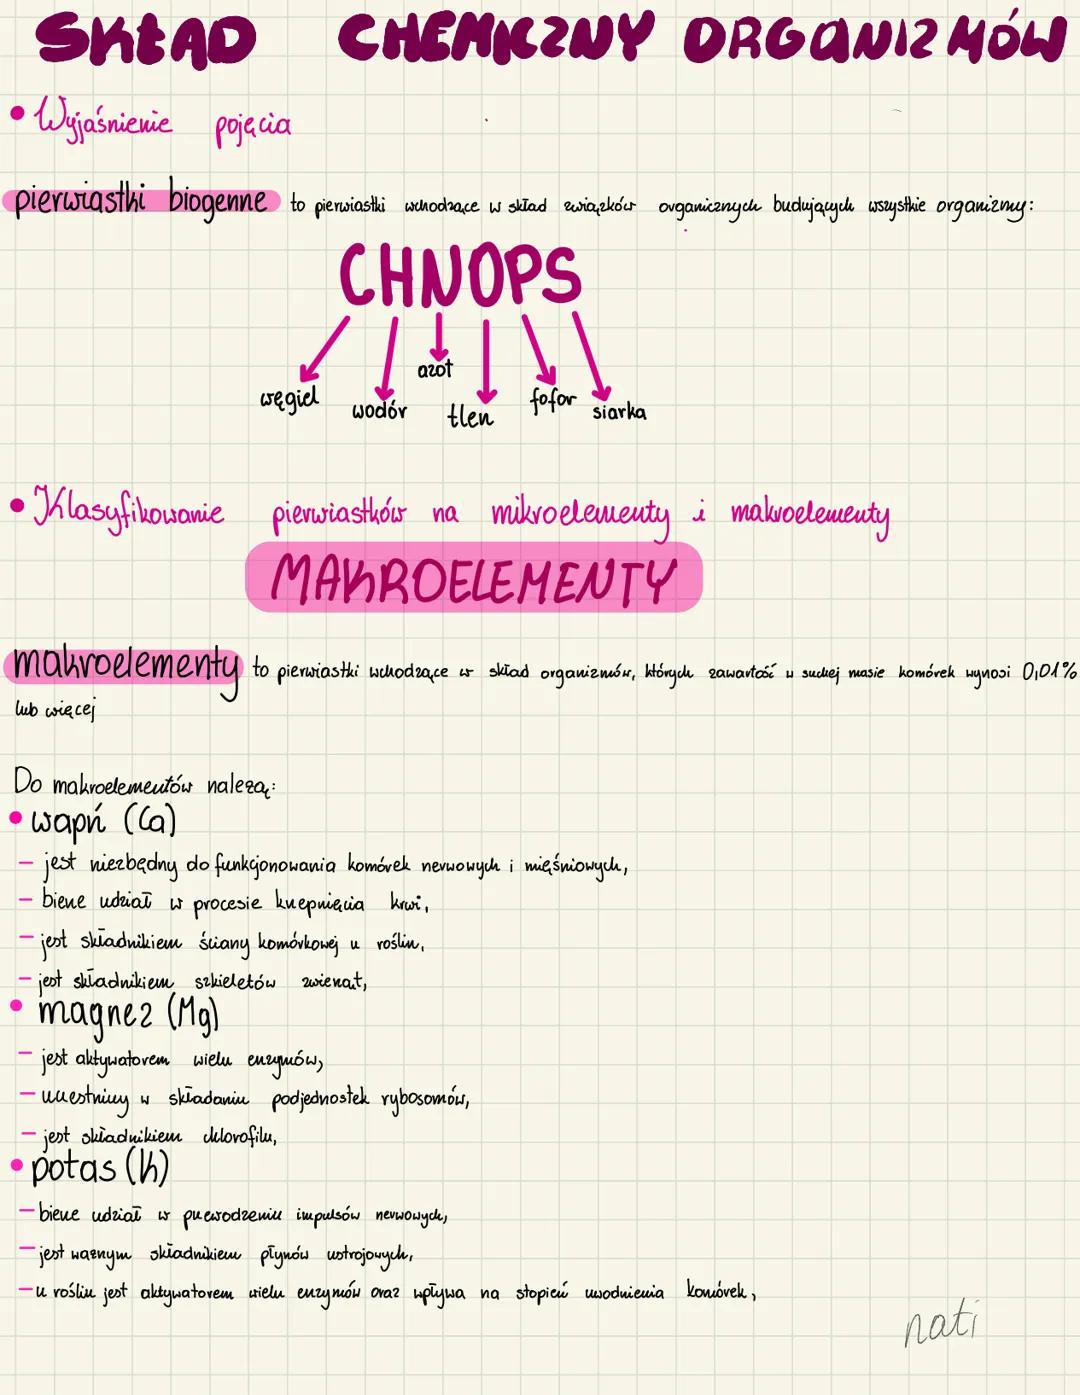 SKŁAD CHEMICZNY ORGANIZMÓW
• Wyjaśnienie pojęcia
pierwiastki biogenne to pierwiastki wchodzące w skład związków organicznych budujących wszystkie organizmy:
CHNOPS
azot
węgiel wodór tlen fofor siarka
• Klasyfikowanie pierwiastków na mikroelementy i makroelementy
MAKROELEMENTY
makroelementy to pierwiastki wchodzące w skład organizmów, których zawartość w suchej masie komórek wynosi 0,01%
lub więcej
Do makroelementów należą:
• wapń (Ca)
- jest niezbędny do funkcjonowania komórek nerwowych i mięśniowych,
- bierze udział w procesie krzepnięcia krwi,
- jest składnikiem ściany komórkowej u roślin,
- jest składnikiem szkieletów zwierząt,
• magnez (Mg)
- jest aktywatorem wielu enzymów,
- uczestniczy w składaniu podjednostek rybosomów,
- jest składnikiem chlorofilu,
• potas (K)
- bierze udział w przewodzeniu impulsów nerwowych,
- jest ważnym składnikiem płynów ustrojowych,
- u roślin jest aktywatorem wielu enzymów oraz wpływa na stopień uwodnienia komórek,
nati